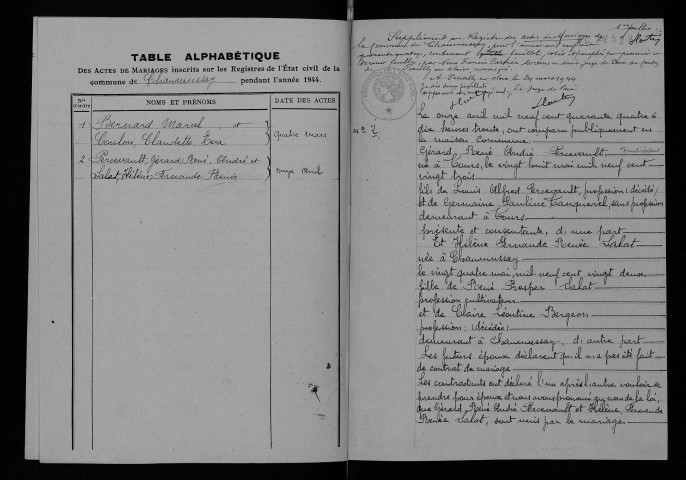 TABLE ALPHABÉTIQUE
DES ACTES DE MARIAGES inscrits sur les Registres de l'État civil de la
commune de Chaumussay pendant l'année 1944.
Nos d'ordre
NOMS ET PRÉNOMS
DATE DES ACTES
1 Bernard Marcel, et
Coulon, Claudette, Eva
quatre mars
2 Percevault, Gérard, René, André et
Salat, Hélène, Fernande Renée
onze avril
1er feuillet
Supplément au Registre des actes de Mariages de
la commune de Chaumussay, pour l'année mil neuf cent
quarante quatre, contenant feuillet, coté et paraphé par premier et
dernier feuillet, par Nous
A Preuilly sur Claise le 29 mars 1944
Le Juge de Paix
No 2
Le onze avril mil neuf cent quarante quatre à
dix heures trente, ont comparu publiquement en
la maison Commune,
Gérard, René André Percevault
né à Tours, le vingt huit mai mil neuf cent
vingt trois
fils de Louis Alfred Percevault, profession (décédé)
et de Germaine Pauline Tanquerel, sans profession
demeurant à Tours
présente et consentante, d'une part
Et Hélène Fernande Renée Salat
née à Chaumussay
le vingt quatre mai, mil neuf cent, vingt deux
fille de René Prosper Salat
profession cultivateur
et de Claire Léontine Bergeon
profession : (décédée)
demeurant à Chaumussay, d'autre part
Les futurs époux déclarent qu'il n'a pas été fait
de contrat de mariage
Les contractants ont déclaré l'un après l'autre vouloir se
prendre pour époux et nous avons prononcé au nom de la loi,
que Gérard, René André Percevault et Hélène, Fernande
Renée Salat, sont unis par le mariage